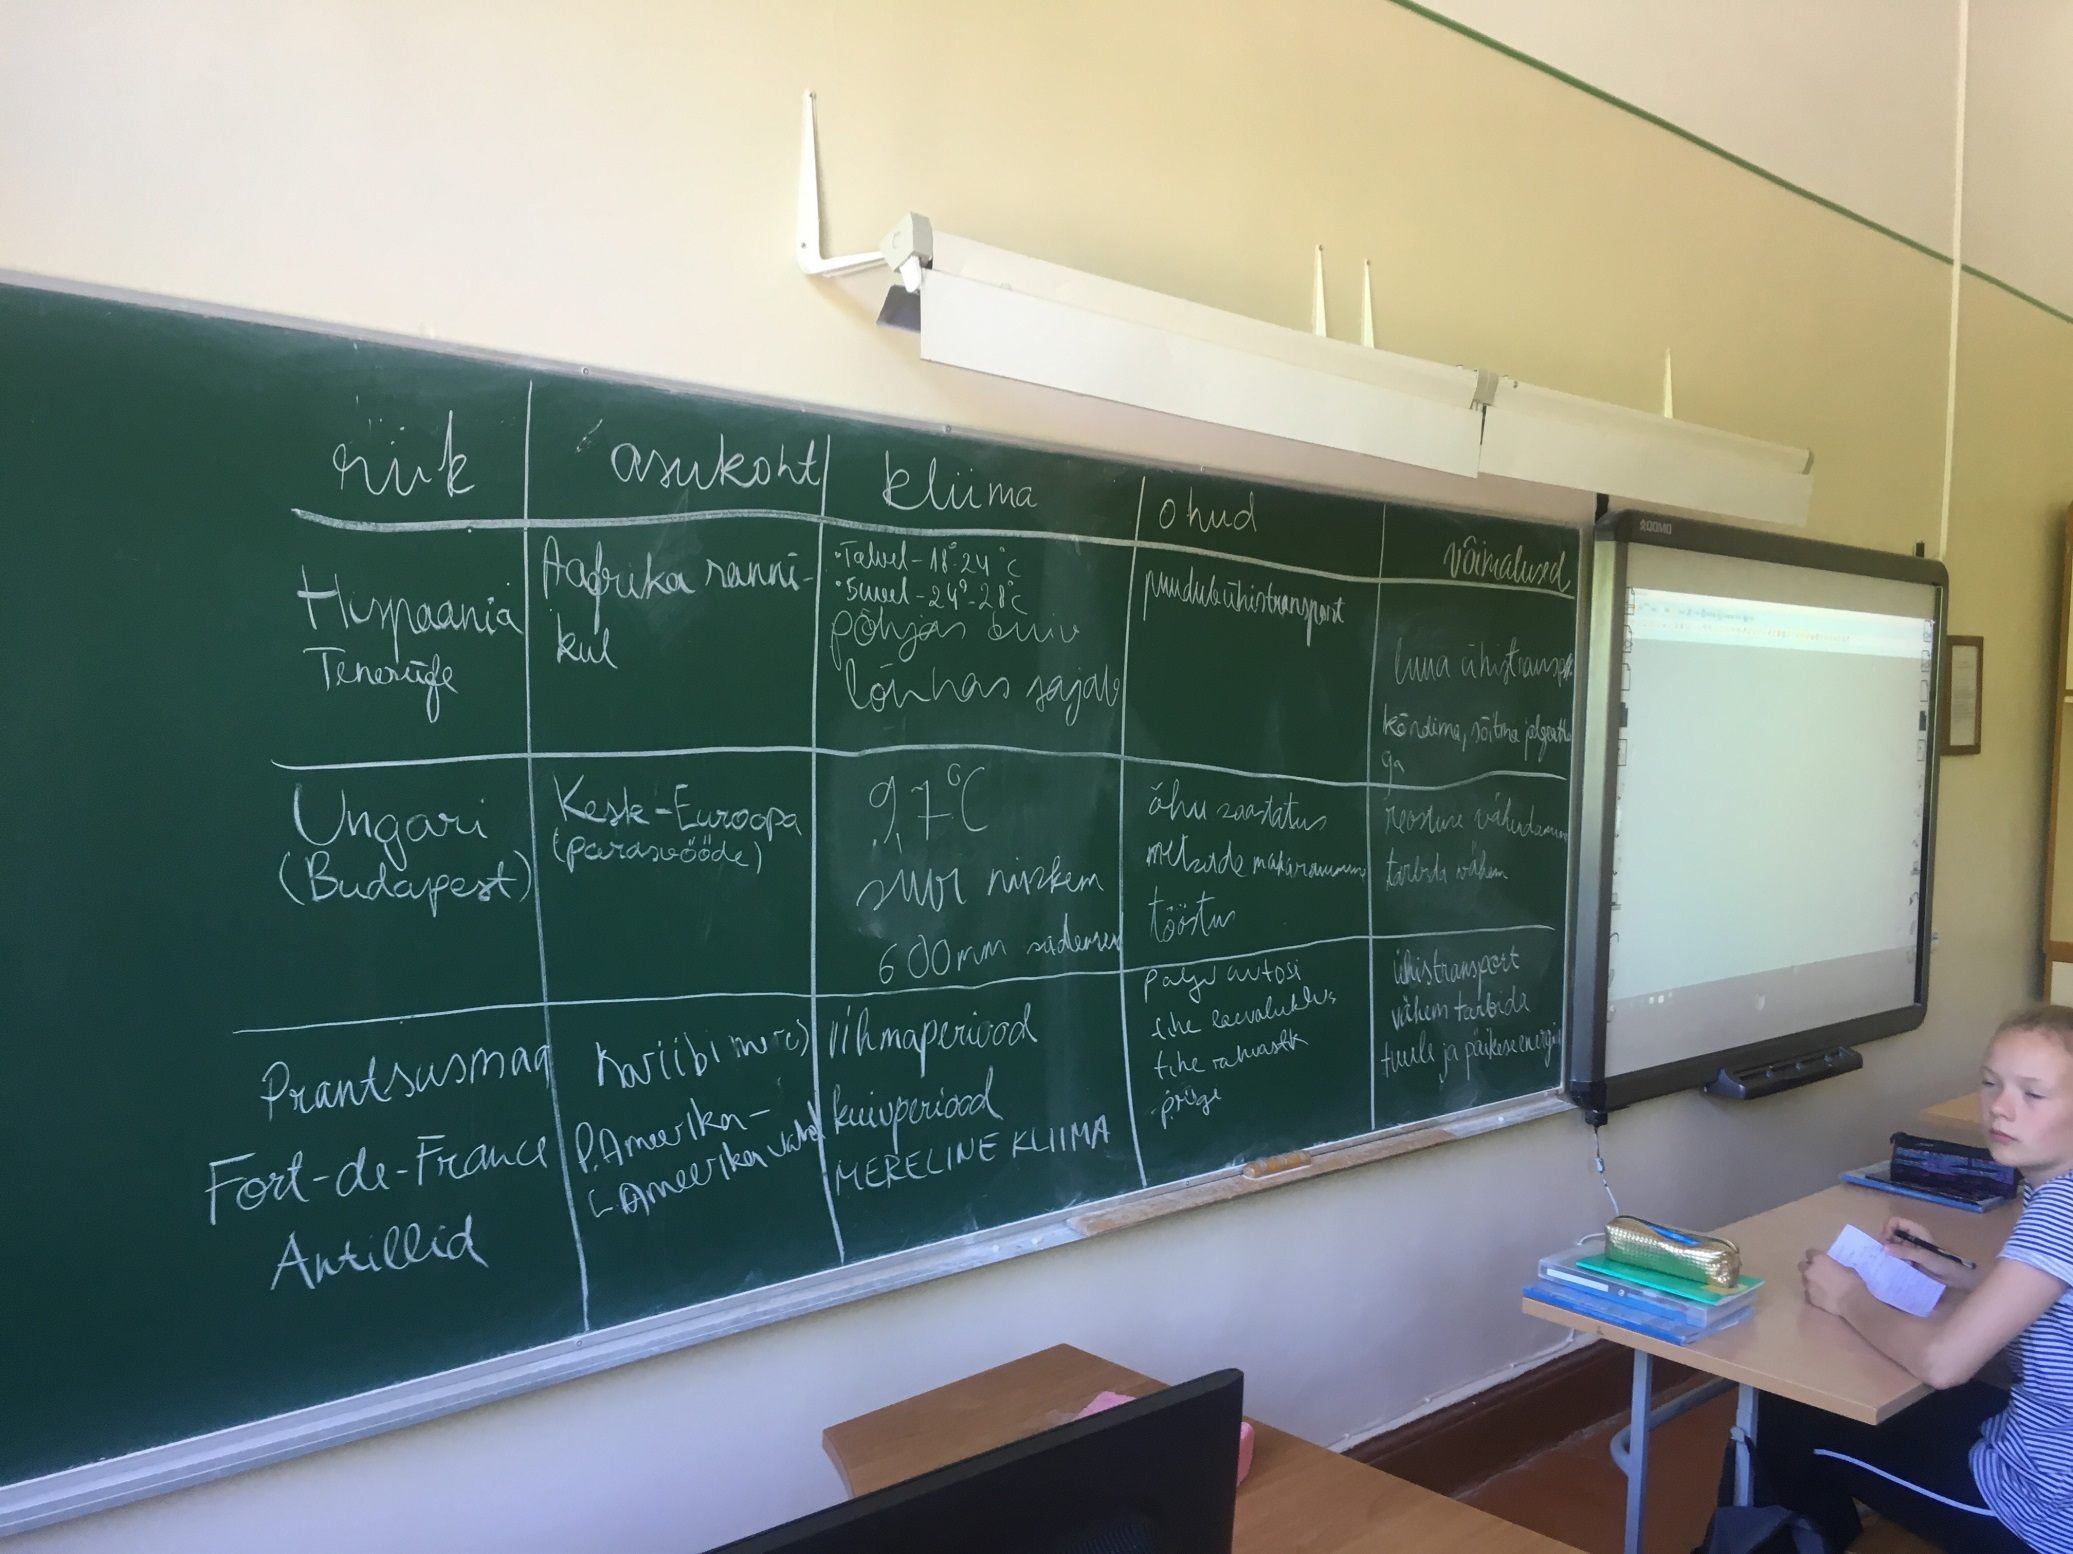 riik
asukoht
kliima
ohud
võimalused
Hispaania
Teneriife
Aafrika ranni-
kul
•Talvel-18°-24°C
•Suvel-24°-28°C
põhjas kuiv
lõunas sajab
puudub ühistransport
luua ühistransp
kõndima, sõitma jalgratta
ga
Ungari
(Budapest)
Kesk-Euroopa
(parasvööde)
9,7°C
suur niiskem
600mm sademen
õhu saastatus
metsade maharaiumine
tööstus
reostuse vähendamine
tarbida vähem
Prantsusmaa
Fort-de-France
Antillid
Kariibi meri
P.Ameerika-
L.Ameerika vahel
vihmaperiood
kuivperiood
MERELINE KLIIMA
palju autosi
tihe laevaliiklus
tihe rahvastik
prügi
ühistransport
vähem tarbida
tuule ja päikeseenergia
QOMO